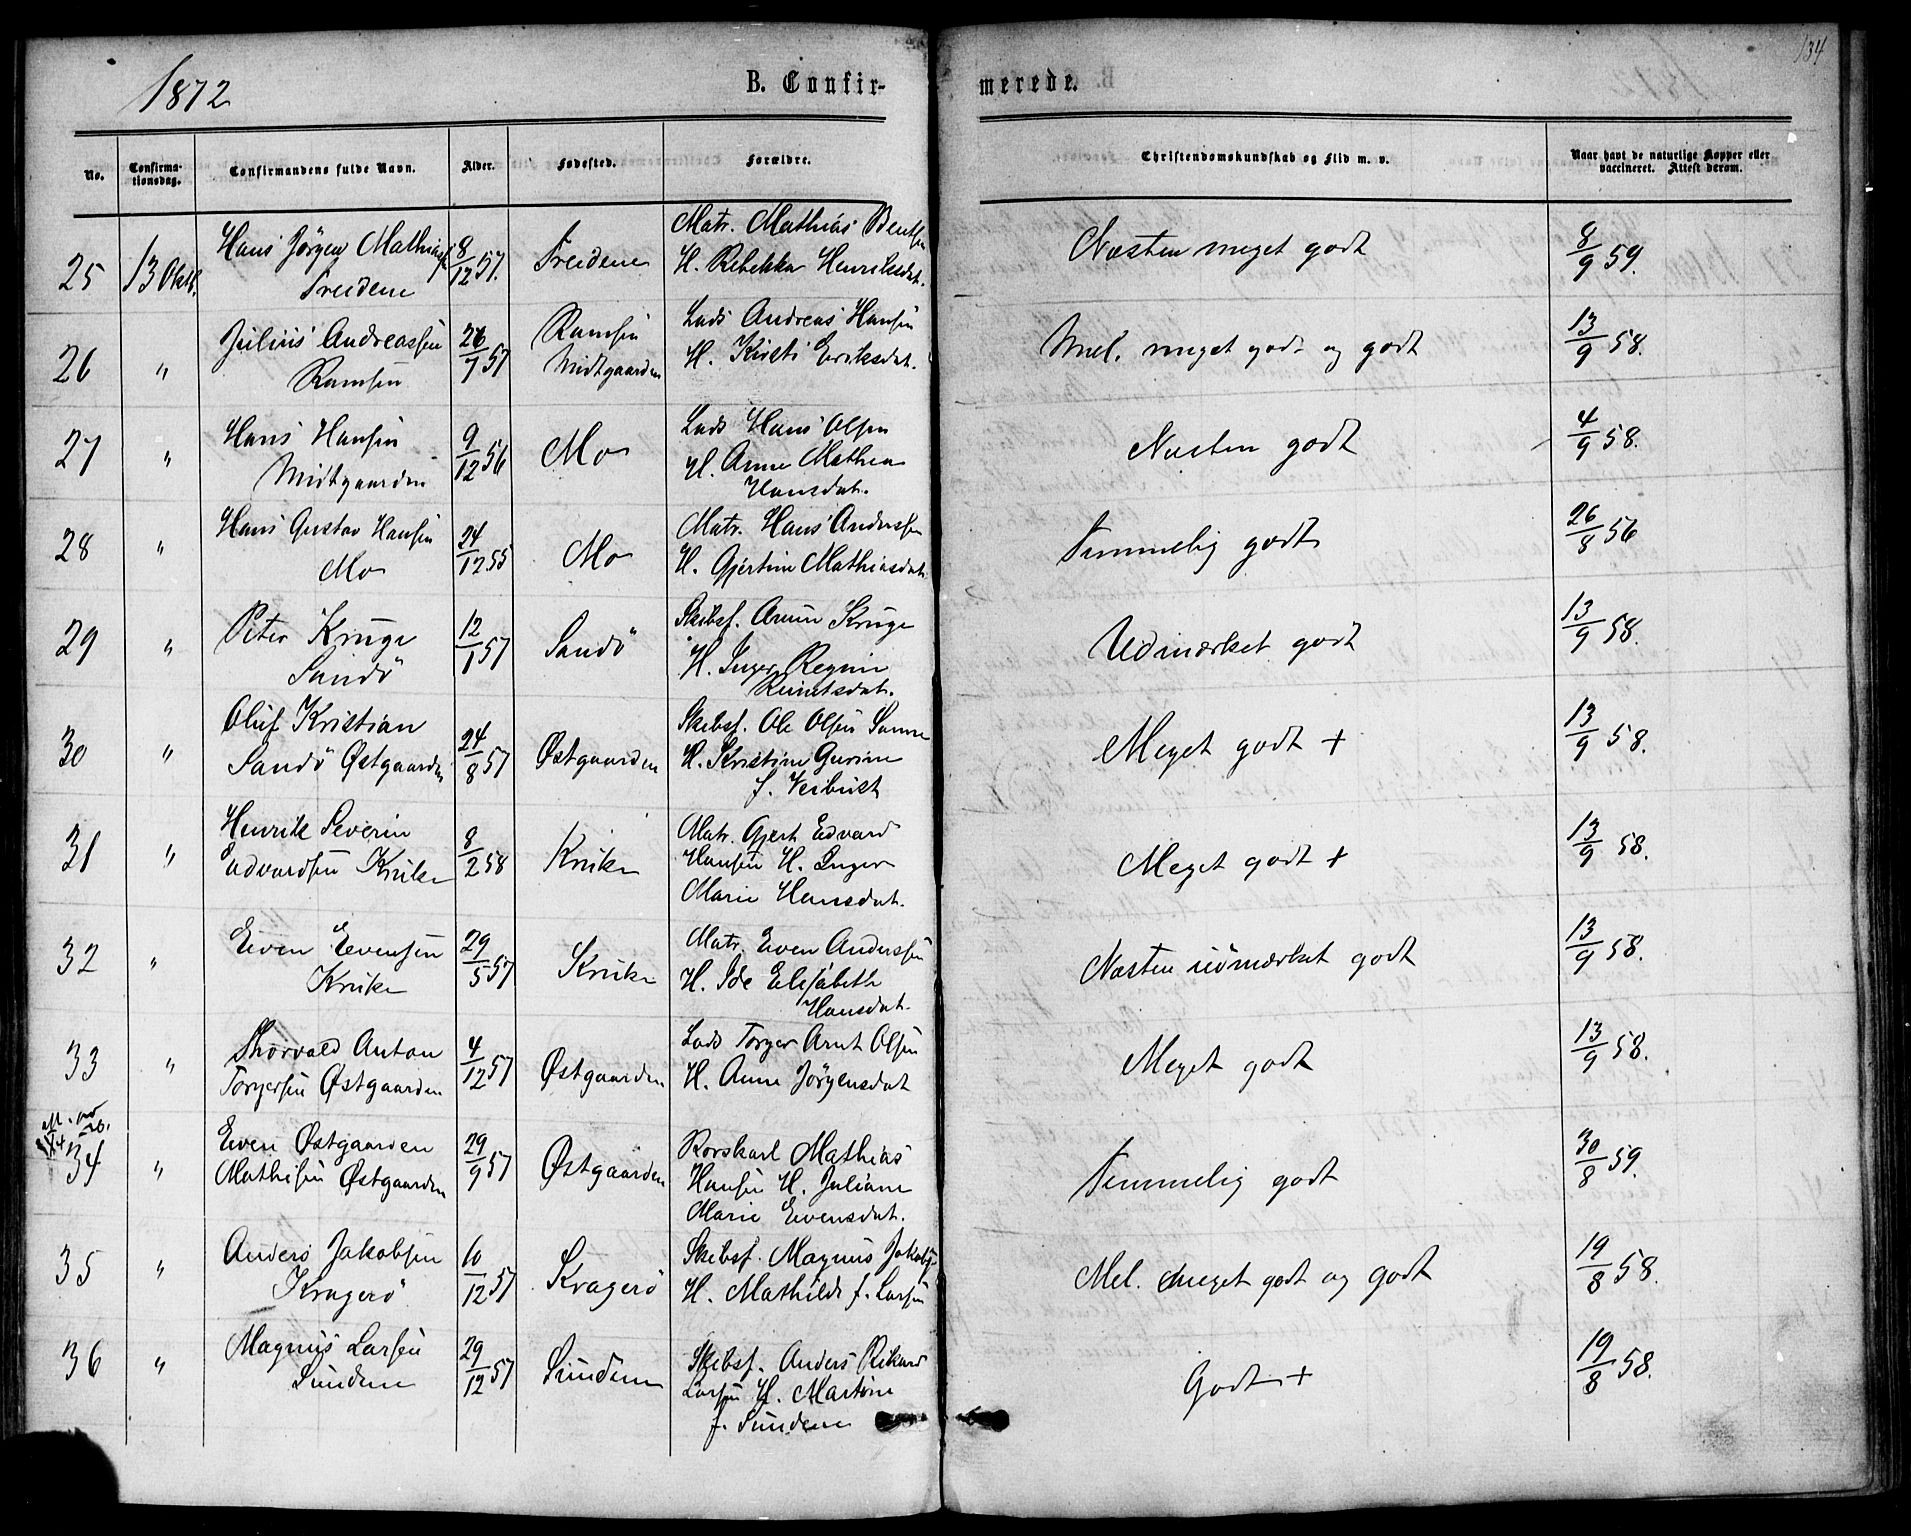 134
1872
B. Confir-
merede.
No.
Confirma-
tionsdag.
Confirmandens fulde Navn.
Alder.
Fødested.
Forældre.
Christendomskundskab og Flid m. v.
Naar havt de naturlige Kopper eller
vaccineret. Attest derom.
25
13 Oktb.
Hans Jørgen Mathiasen
8/12 57.
Matr. Mathias Bentsen
H. Rebekka Henriksdat.
Næsten meget godt
8/9 59.
26
"
Julius Andreassen
Ramsen
26/7 57
Ramsen
Midtgaarden
Lods Andreas Hansen
H. Kirsti Eriksdat.
Mel. meget godt og godt
13/9 58.
27
"
Hans Hansen
Midtgaarden
9/12 56
Mo
Lods Hans Olsen
H. Anne Mathea
Hansdat.
Næsten godt
4/9 58.
28
"
Hans Gustav Hansen
Mo
24/12 55
Mo
Matr. Hans Anderssen
H. Gjertine Mathiasdat.
Temmelig godt
26/8 56
29
"
Peter Kruge
Sandö
12/1 57
Sandö
Skibsf. Kruge
H. Inger Regine
Reinertsdat.
Udmærket godt
13/9 58.
30
"
Oluf Kristian
Sandö Østgaarden
24/8 57
Østgaarden
Skibsf. Ole Olsen
H. Kristine Gurine
f.
Meget godt +
13/9 58.
31
"
Henrik Severin
Edvardsen Kruke
8/2 58
Kruke
Matr. Gjert Edvard
Hansen H. Inger
Marie Hansdat.
Meget godt +
13/9 58.
32
"
Even Evensen
Kruke
29/5 57
Kruke
Matr. Even Anderssen
H. Ide Elisabeth
Hansdat.
Næsten udmærket godt
13/9 58.
33
"
Thorvald Anton
Torgersen Østgaarden
4/12 57
Østgaarden
Lods Torger Arnt Olsen
H. Anne Jørgensdat
Meget godt
13/9 58.
34
"
Even Østgaarden
Mathisen Østgaarden
29/9 57
Østgaarden
Rorskarl Mathias
Hansen H. Juliane
Marie Evensdat.
Temmelig godt
30/8 59.
35
"
Anders Jakobsen
Kragerö
10/12 57
Kragerö
Skibsf. Magnus Jakobs.
H. Mathilde f. Larsen
Mel. meget godt og godt
19/8 58.
36
"
Magnus Larsen
Sundene
29/12 57
Sundene
Skibsf. Anders Rikard
Larsen H. Martine
f. Sundene
Godt +
19/8 58.